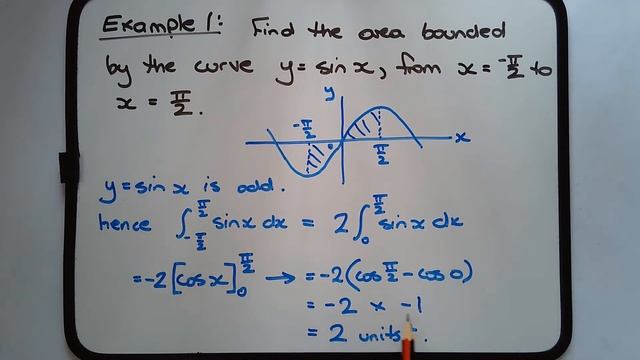 Example 1: Find the area bounded
by the curve y = sin x, from x = -π/2 to
x = π/2.
y
-π/2
π/2
x
y = sin x is odd.
hence ∫_{-π/2}^{π/2} sin x dx = 2∫_0^{π/2} sin x dx
= -2[cos x]_0^{π/2} → = -2(cos π/2 - cos 0)
= -2 x -1
= 2 units